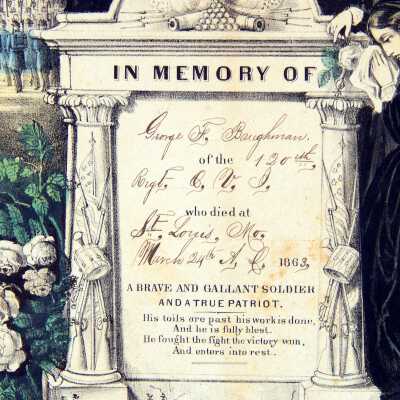 IN MEMORY OF
George F. Baughman.
of the 120th.
Regt. O. V. I.
who died at
St. Louis, Mo.
March 24th A. D. 1863,
A BRAVE AND GALLANT SOLDIER
AND A TRUE PATRIOT.
His toils are past his work is done,
And he is fully blest.
He fought the fight the victory won,
And enters into rest.